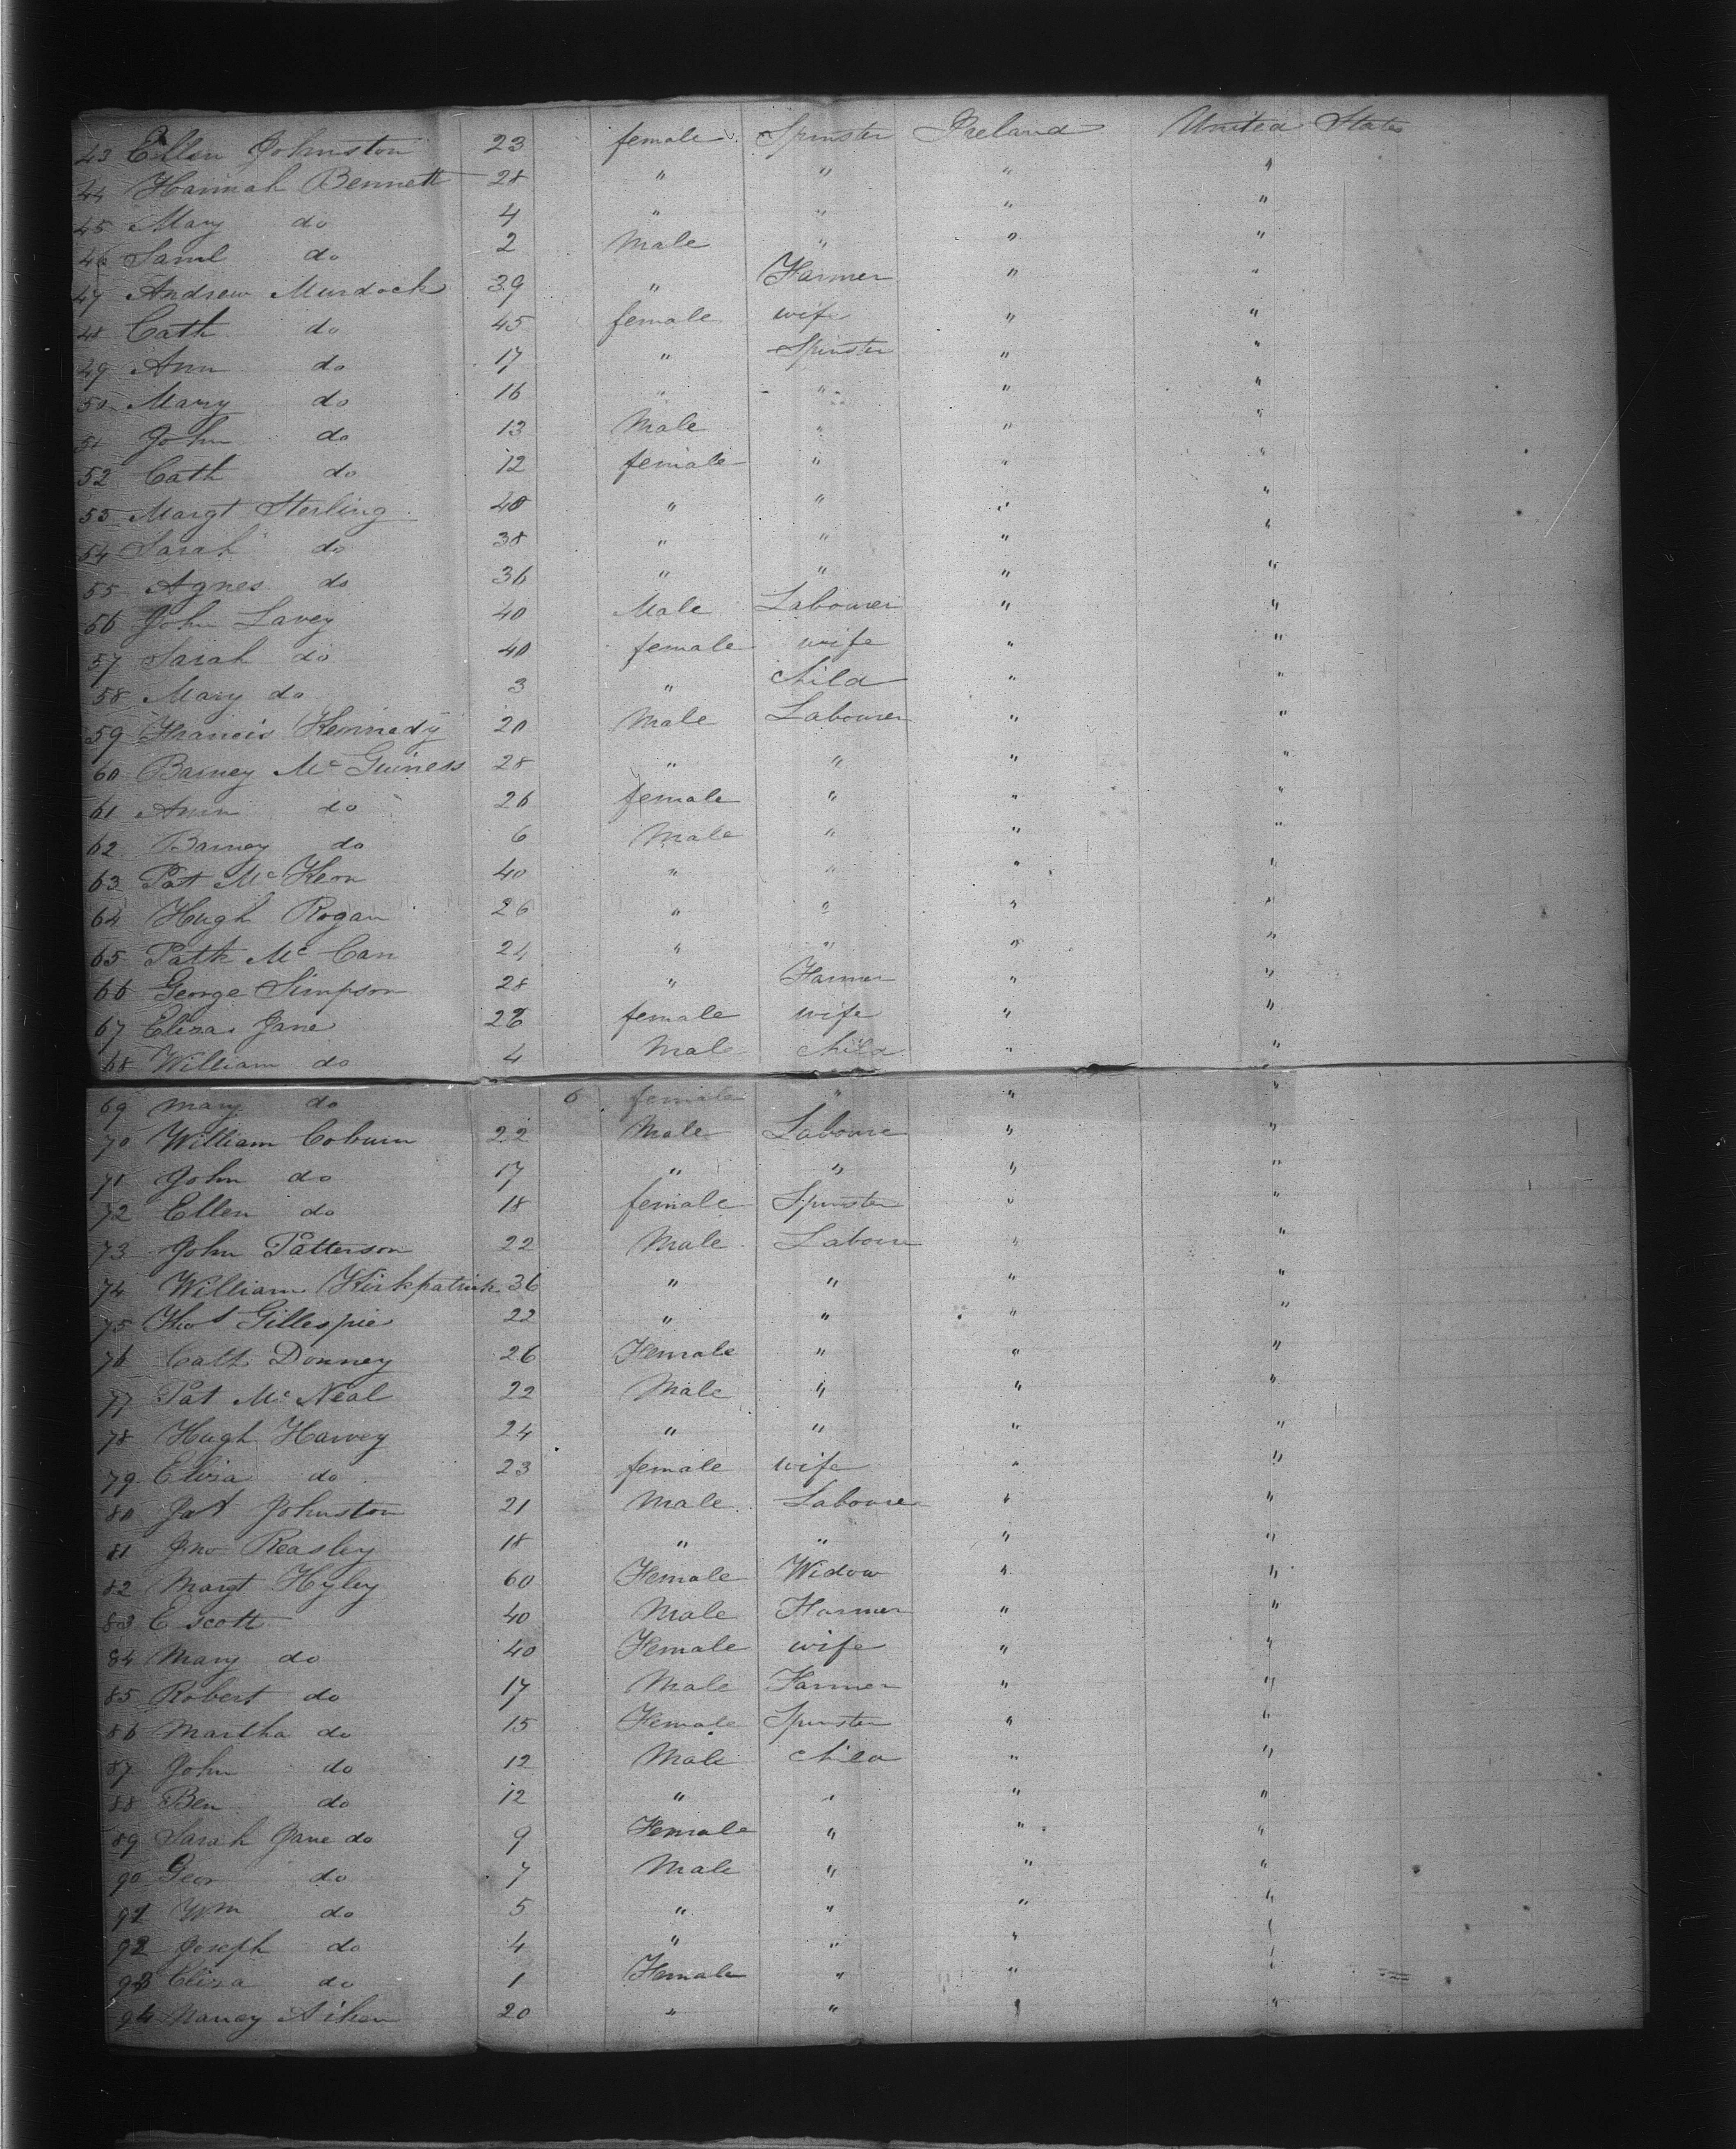 43 Ellen Johnston 23 female Spinster Ireland United States
44 Hannah Bennett 28 " " " "
45 Mary do 4 " " " "
46 Saml do 2 Male " " "
47 Andrew Murdock 39 " Farmer " "
48 Cath do 45 female wife " "
49 Ann do 17 " Spinster " "
50 Mary do 16 " " " "
51 John do 13 Male " " "
52 Cath do 12 female " " "
53 Margt Sterling 40 " " " "
54 Sarah do 38 " " " "
55 Agnes do 36 " " " "
56 John Lavey 40 Male Labourer " "
57 Sarah do 40 female wife " "
58 Mary do 3 " child " "
59 Francis Kennedy 20 Male Labourer " "
60 Barney Mc Guiness 28 " " " "
61 Ann do 26 female " " "
62 Barney do 6 Male " " "
63 Pat Mc Keon 40 " " " "
64 Hugh Rogan 26 " " " "
65 Patk Mc Can 24 " " " "
66 George Simpson 28 " Farmer " "
67 Eliza Jane 26 female wife " "
68 William do 4 Male child " "
69 Mary do 6 female " " "
70 William Coburn 22 Male Laboure " "
71 John do 17 " " " "
72 Ellen do 18 female Spinster " "
73 John Patterson 22 Male Laboure " "
74 William Kirkpatrick 36 " " " "
75 Thos Gillespie 22 " " " "
76 Cath Donney 26 Female " " "
77 Pat Mc Neal 22 Male " " "
78 Hugh Harvey 24 " " " "
79 Eliza do 23 female wife " "
80 Jas Johnston 21 Male Labourer " "
81 Jno Reasley 18 " " " "
82 Margt Hyley 60 Female Widow " "
83 E scott 40 Male Farmer " "
84 Mary do 40 Female wife " "
85 Robert do 17 Male Farmer " "
86 Martha do 15 Female Spinster " "
87 John do 12 Male child " "
88 Ben do 12 " " " "
89 Sarah Jane do 9 Female " " "
90 Geor do 7 Male " " "
91 Wm do 5 " " " "
92 Joseph do 4 " " " "
93 Eliza do 1 Female " " "
94 Nancy Aiken 20 " " " "